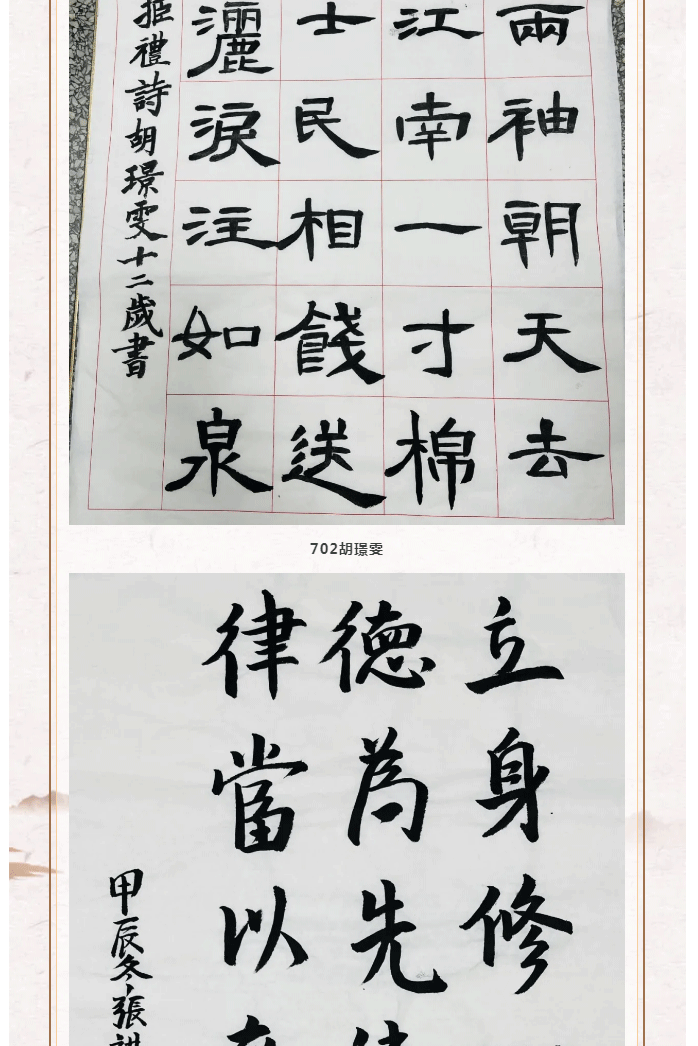 兩袖朝天去
江南一寸棉
士民相餞送
灑淚注如泉
拒禮詩胡璟雯十二歲書
702胡璟雯
立身修
德為先
律當以
甲辰冬張